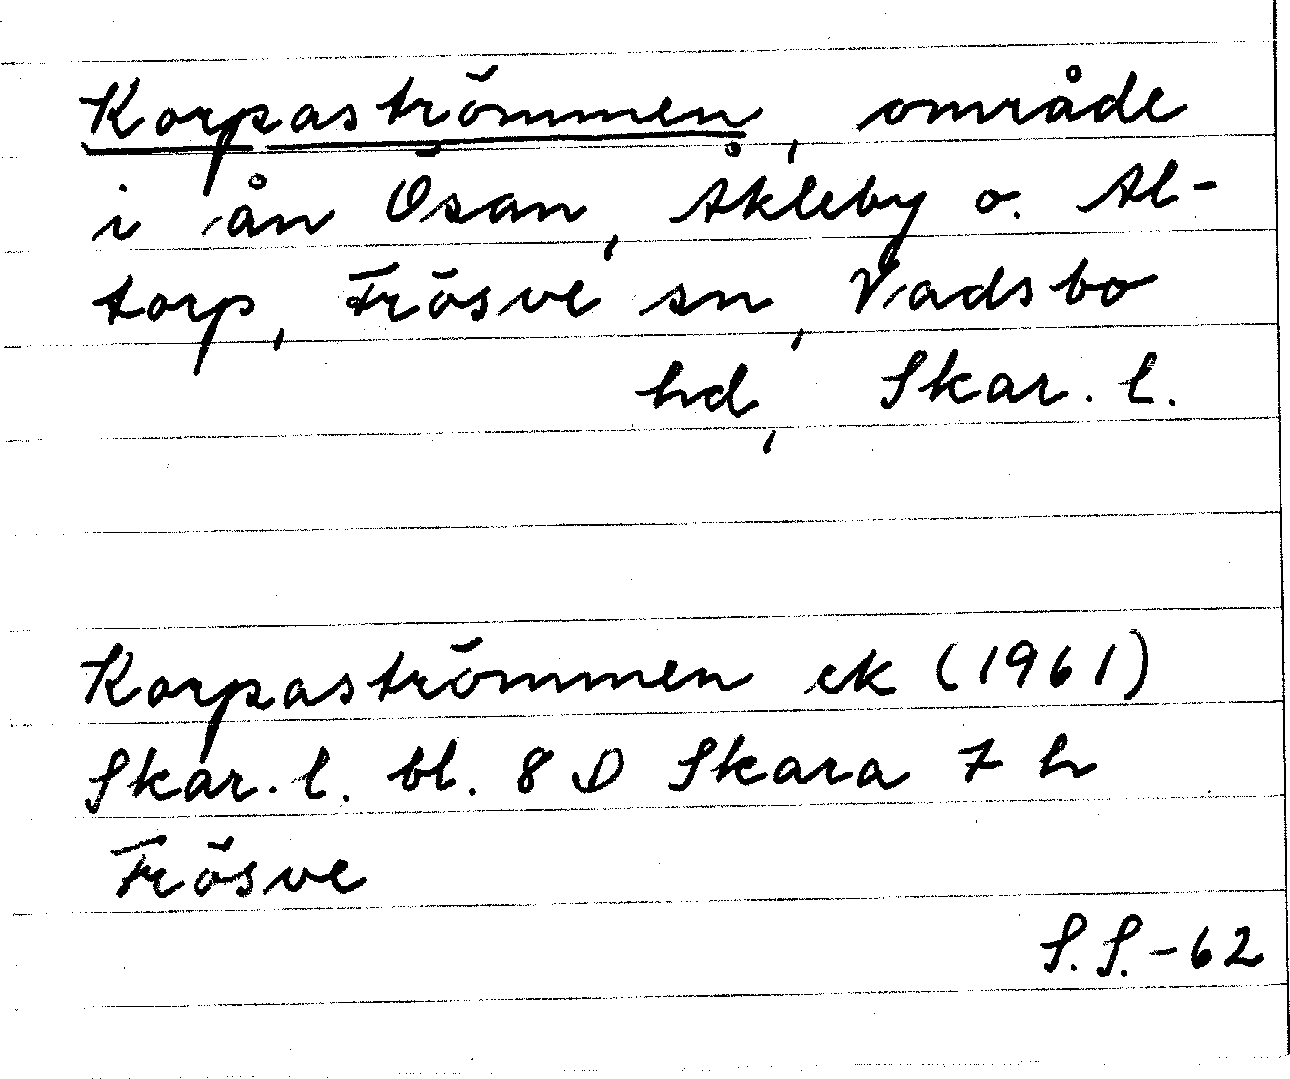 Korpaströmmen, område
i ån Ösan, Åkleby o. Al-
torp, Frösve sn, Vadsbo
hd, Skar. l.
Korpaströmmen ek (1961)
Skar. l. bl. 8 D Skara 7 h
Frösve
S. S. -62